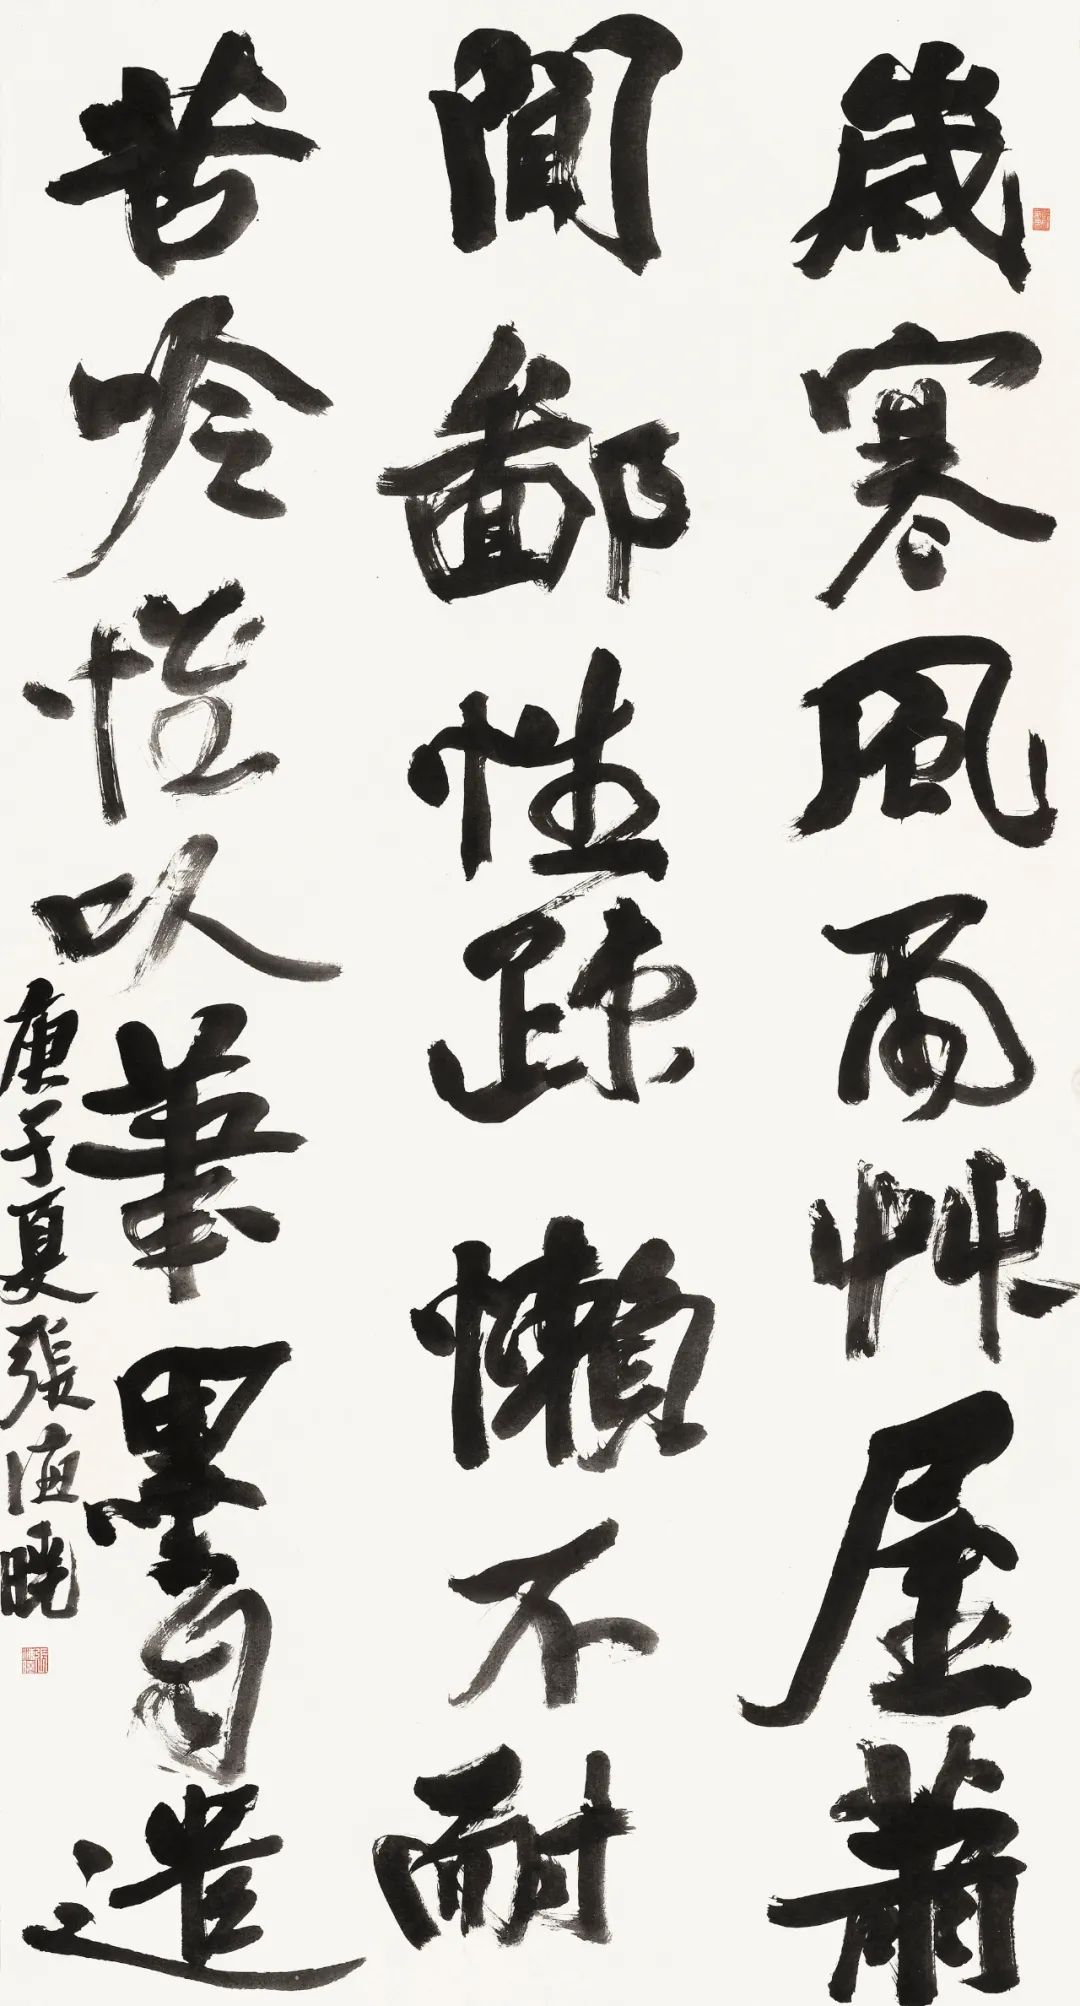 歲寒風雨艸屋蕭
閒鄙性疎懶不耐
苦吟惟以筆墨自遣
庚子夏張海曉